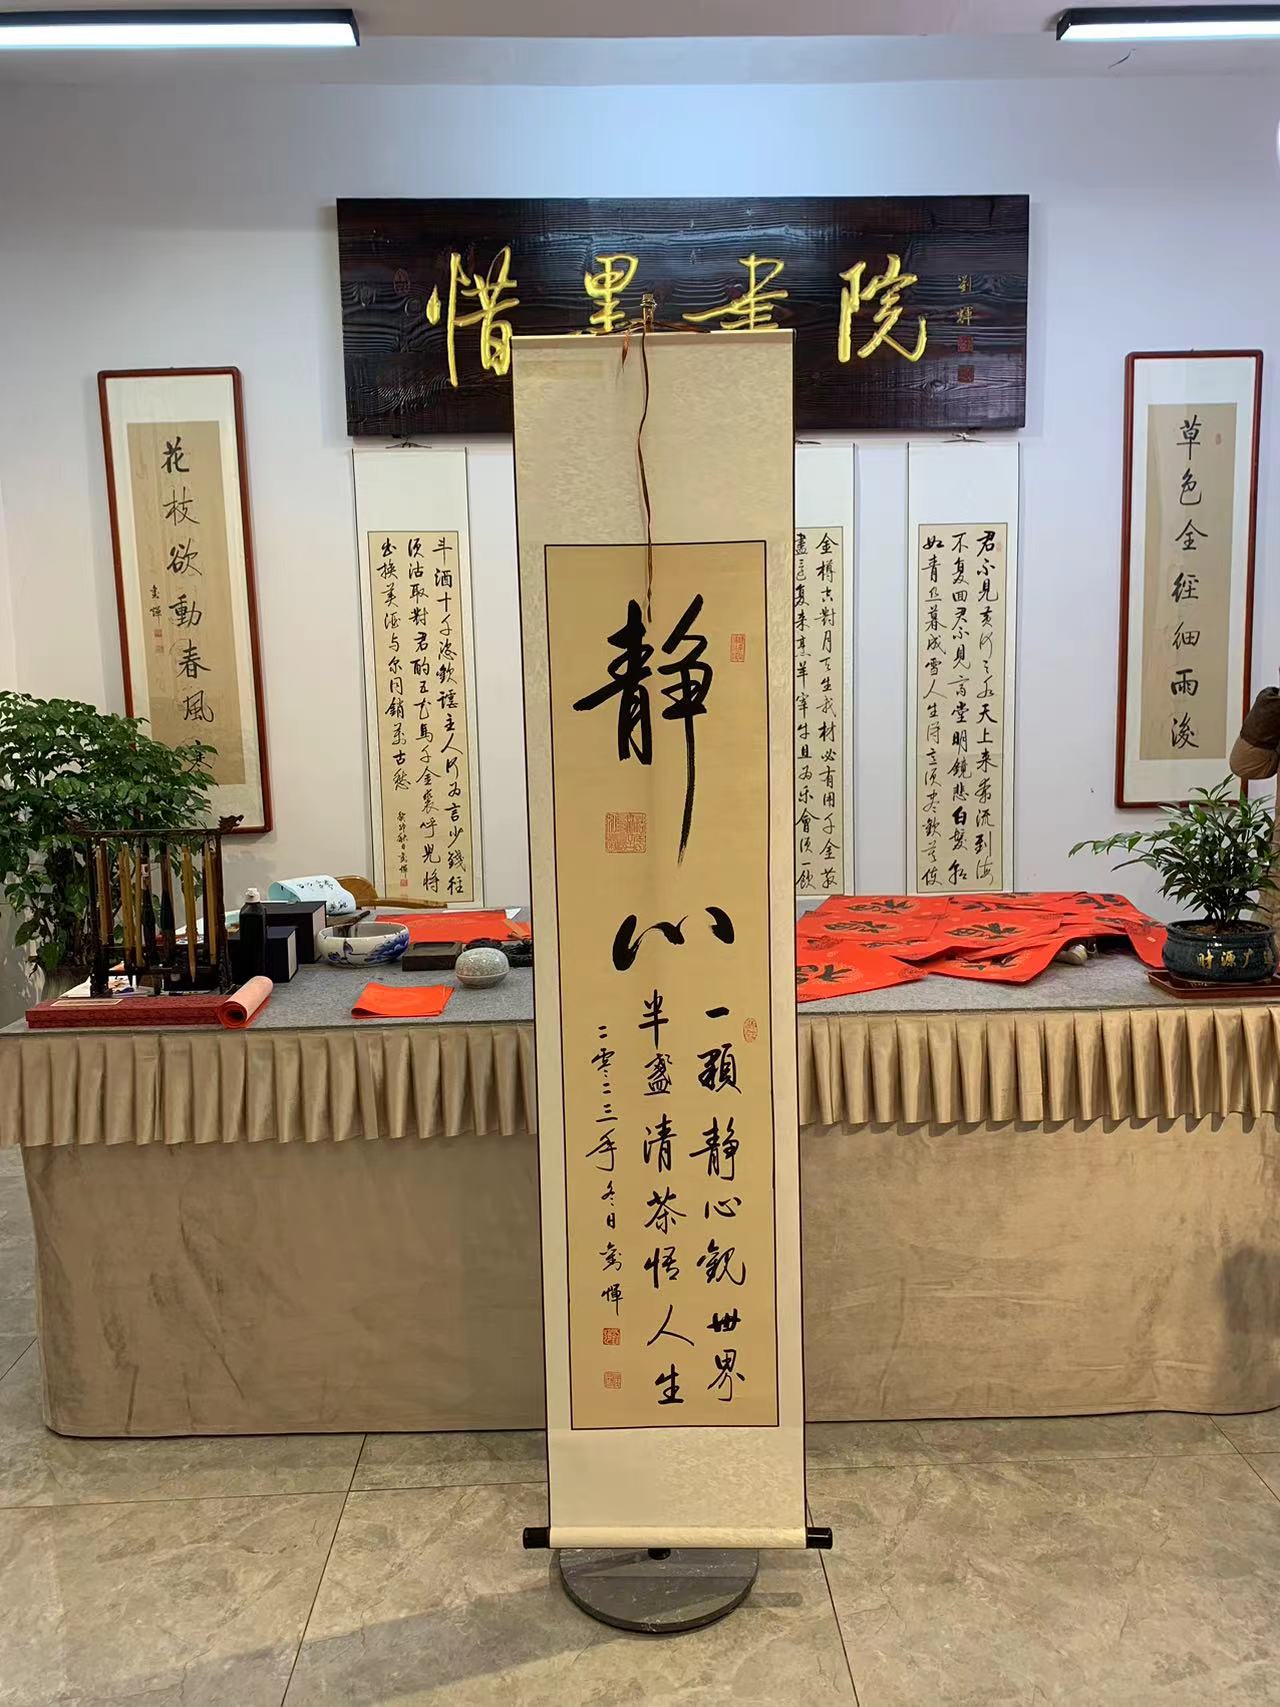 惜墨書院
劉輝
静心
一顆静心觀世界
半盞清茶悟人生
二零二三年冬日劉輝
草色全經細雨淩
花枝欲動春風寒
君不見黃河之水天上来奔流到海
不复回君不見高堂明鏡悲白髮朝
如青丝暮成雪人生得意須盡歡莫使
金樽空對月天生我材必有用千金散
盡還复来烹羊宰牛且为乐會須一飲
斗酒十千恣歡謔主人何为言少錢徑
須沽取對君酌五花馬千金裘呼兒将
出换美酒与尔同銷萬古愁
癸卯秋日
福
财源广進